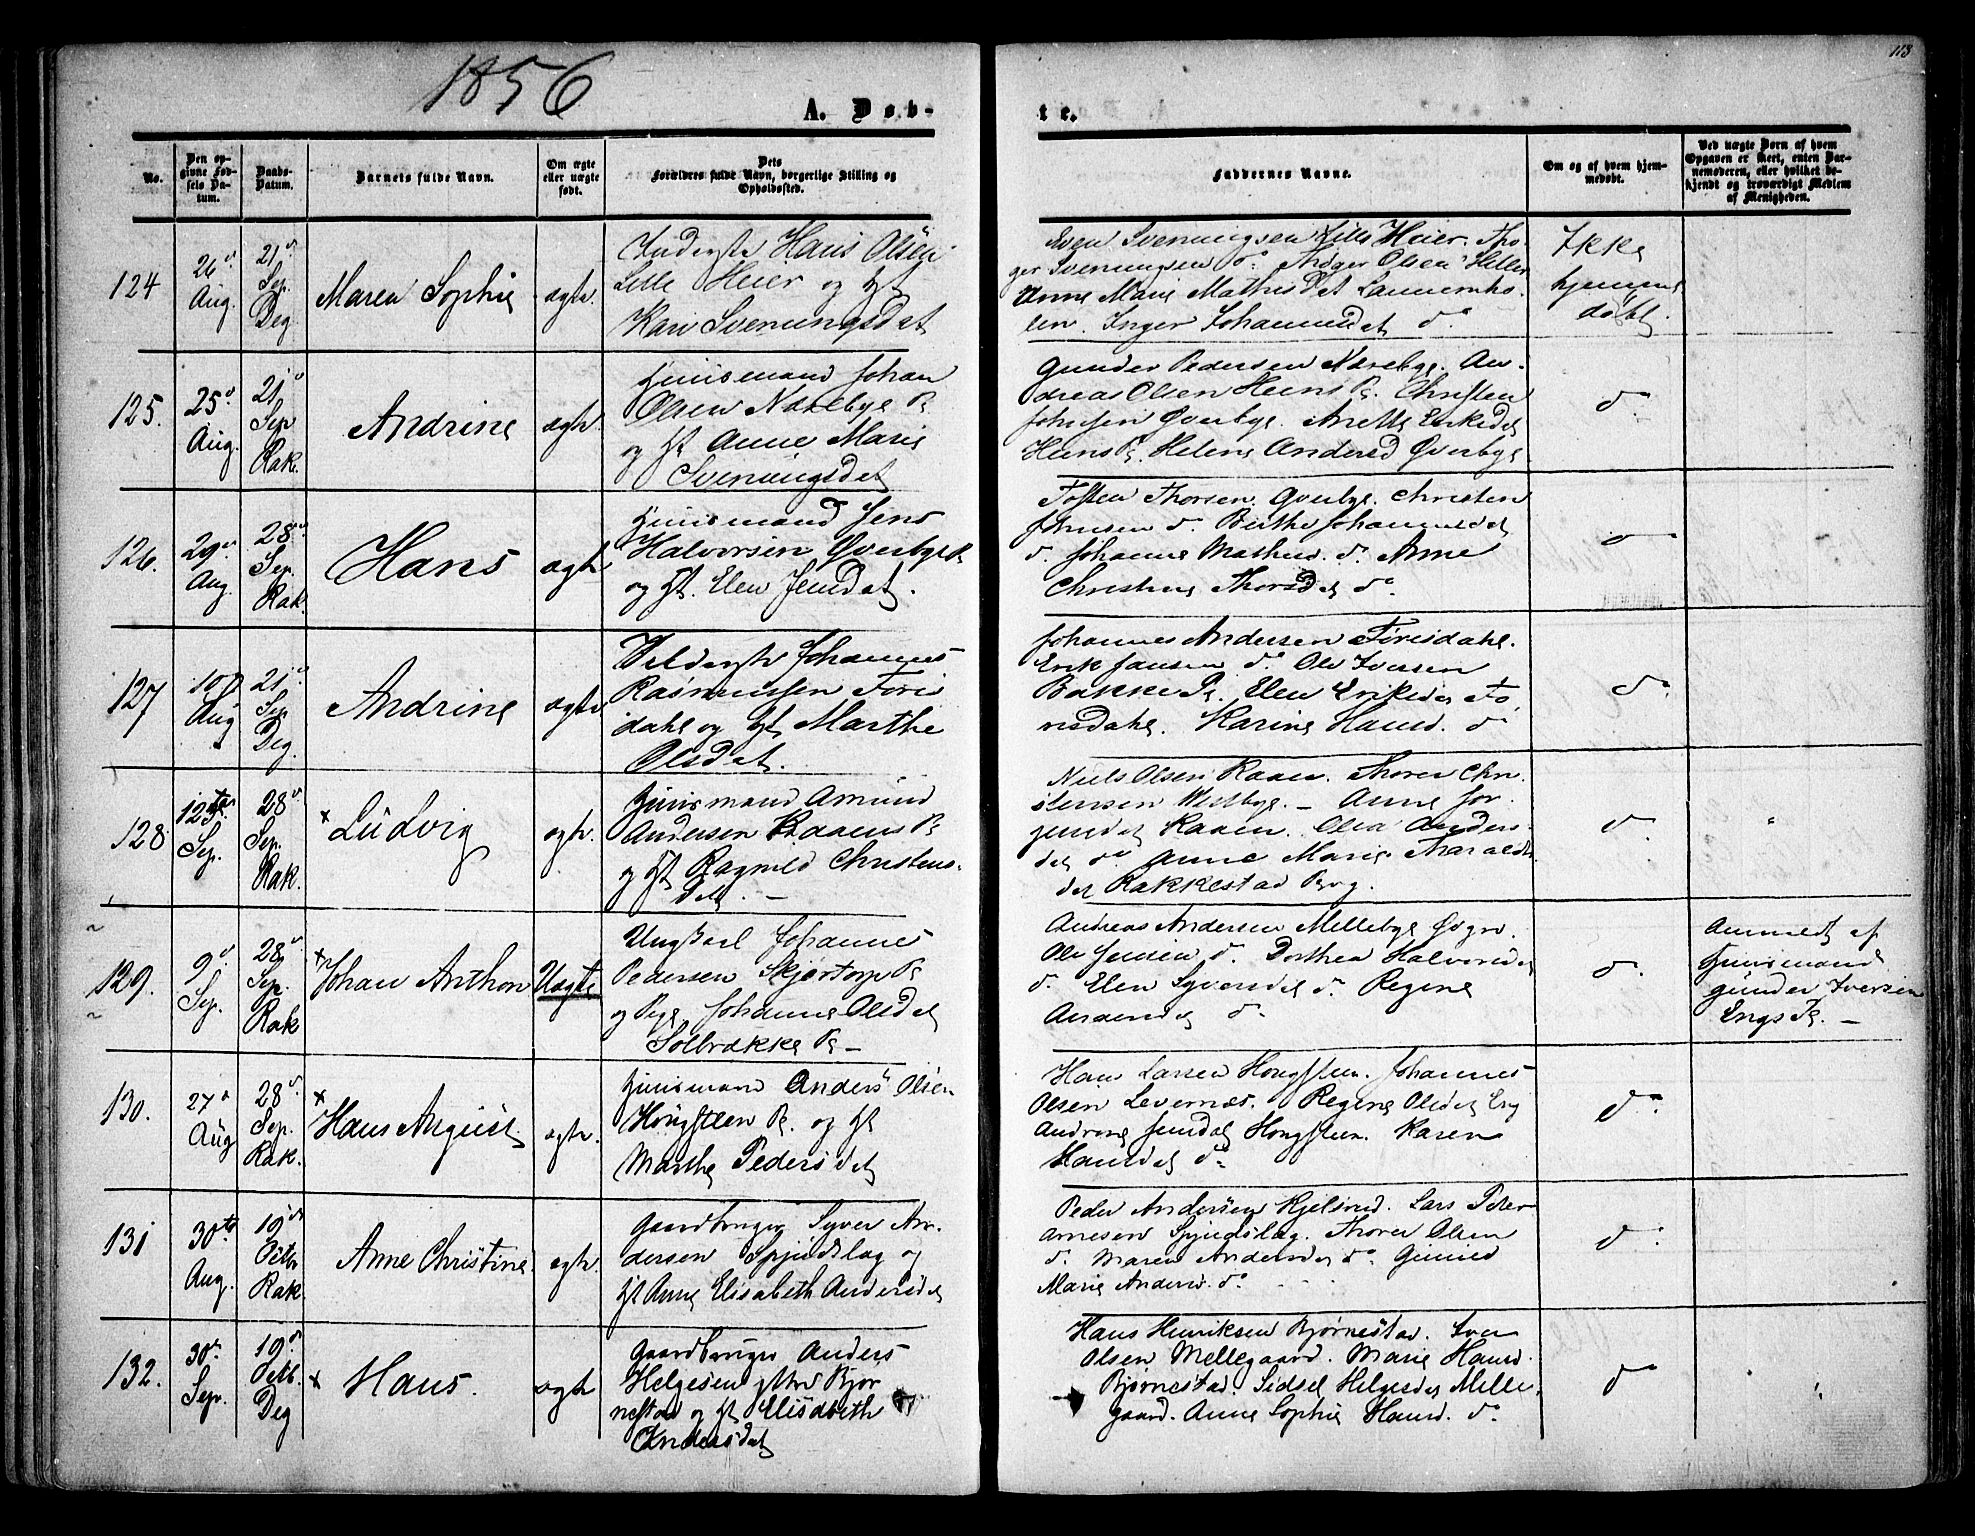 1856
113
A. Døb-
te.
No.
Den op-
givne Fød-
sels Da-
tum.
Daabs-
Datum.
Barnets fulde Navn.
Om ægte
eller uægte
født.
Dets
Forældres fulde Navn, borgerlige Stilling og
Opholdssted.
Faddernes Navne.
Om og af hvem hjem-
medøbt.
Ved uægte Børn af hvem
Opgaven er skeet, enten Bar-
nemoderen, eller hvilket be-
kjendt og troværdigt Medlem
af Menigheden.
124
26
Aug.
21
Sep.
Deg
Maren Sophie
ægte.
Inderste Hans Olsen
Lille Heier og
Kari Svenungsdat
Even Svenungsen Lille Heier. Tho-
ger Svenungsen do. Asger Olsen
Anne Marie Mathisdat
len. Inger Johannesdat do
Ikke
hjemme
døbt.
125.
25
Aug.
21
Sep
Rak.
Andrine
ægte.
Huusmand Johan
Olsen Nærebye
og Anne Marie
Svenungsdat
Gunder Pedersen Nærebye. An-
dreas Olsen Heens Christen
Johnsen Øverbye. Anette
Heens Helene Andersd Øverbye
do
126.
29
Aug.
28
Sep.
Rak.
Hans
ægte
Huusmand Jens
Halvorsen Øverbye
og Elen Jensdat.
Tosten Thorsen Øverbye. Christen
Johnsen do. Birthe Johannesdat
do. Johanne Mathisd. do. Anne
Christine Thorsdat do.
do
127
10
Aug
21
Sep
Deg.
Andrine
ægte
Johannes
Rasmussen Toris
dahl og Marthe
Olsdat.
Johannes Andersen Torisdahl.
Erik Jansen do. Ole Iversen
Bakke Elen Eriksdat To-
risdahl. Karine Hansd. do
do
128
12
Sep.
28
Sep.
Rak.
× Ludvig
ægte.
Huusmand Amund
Andersen Kaaens
og Ragnild Christens-
dat. –
Niels Olsen Kaaen. Thorer Chri-
stensen Westbye. – Anne Jør-
gensdat Kaaen. Olea Anders-
dat do Anne Marie Haralds
dat Rakkestad
do
129.
9
Sep.
28
Sep.
Rak
× Johan Anthon
Uægte
Ungkarl Johannes
Pedersen Skjørtorp
og Pige Johanne Olsdat
Solbrække –
Andreas Andersen Mellebye
Ole Jensen do. Dorthea Halvorsdat
do. Elen Syversdat do. Regine
Andersdat do.
do.
Anmeldt af
Huusmand
Gunder Iversen
Engs –
130.
27
Aug
28
Sep.
Rak.
× Hans August.
ægte.
Huusmand Anders Olsen
Hougsteen og
Marthe Pedersdat
Hans Larsen Hougsteen. Johannes
Olsen Levernæs. Regine Olsdat Eng
Andrine Jensdat Hougsteen. Karen
Hansdat do
do.
131
30
Aug.
19
Octbr
Rak.
Anne Christine.
ægte.
Gaardbruger Syver An-
dersen Spjudslag og
Anne Elisabeth Andersdat
Peder Andersen Kjelsrud. Lars Peter
Arnesen Spjudslag. Thorer Olsen
do. Maren Andersdat do.
Marie Andersd. do
do.
132.
30
Sep.
19
Octb.
Deg
× Hans.
ægte
Gaardbruger Anders
Helgesen Bjør
nestad og Elisabeth
Andersdat
Hans Henriksen Bjørnestad. Iver
Olsen Mellegaard. Marie Hansd.
Bjørnestad. Sidsel Helgesdat Melle-
gaard. Anne Sophie Hansd. do
do